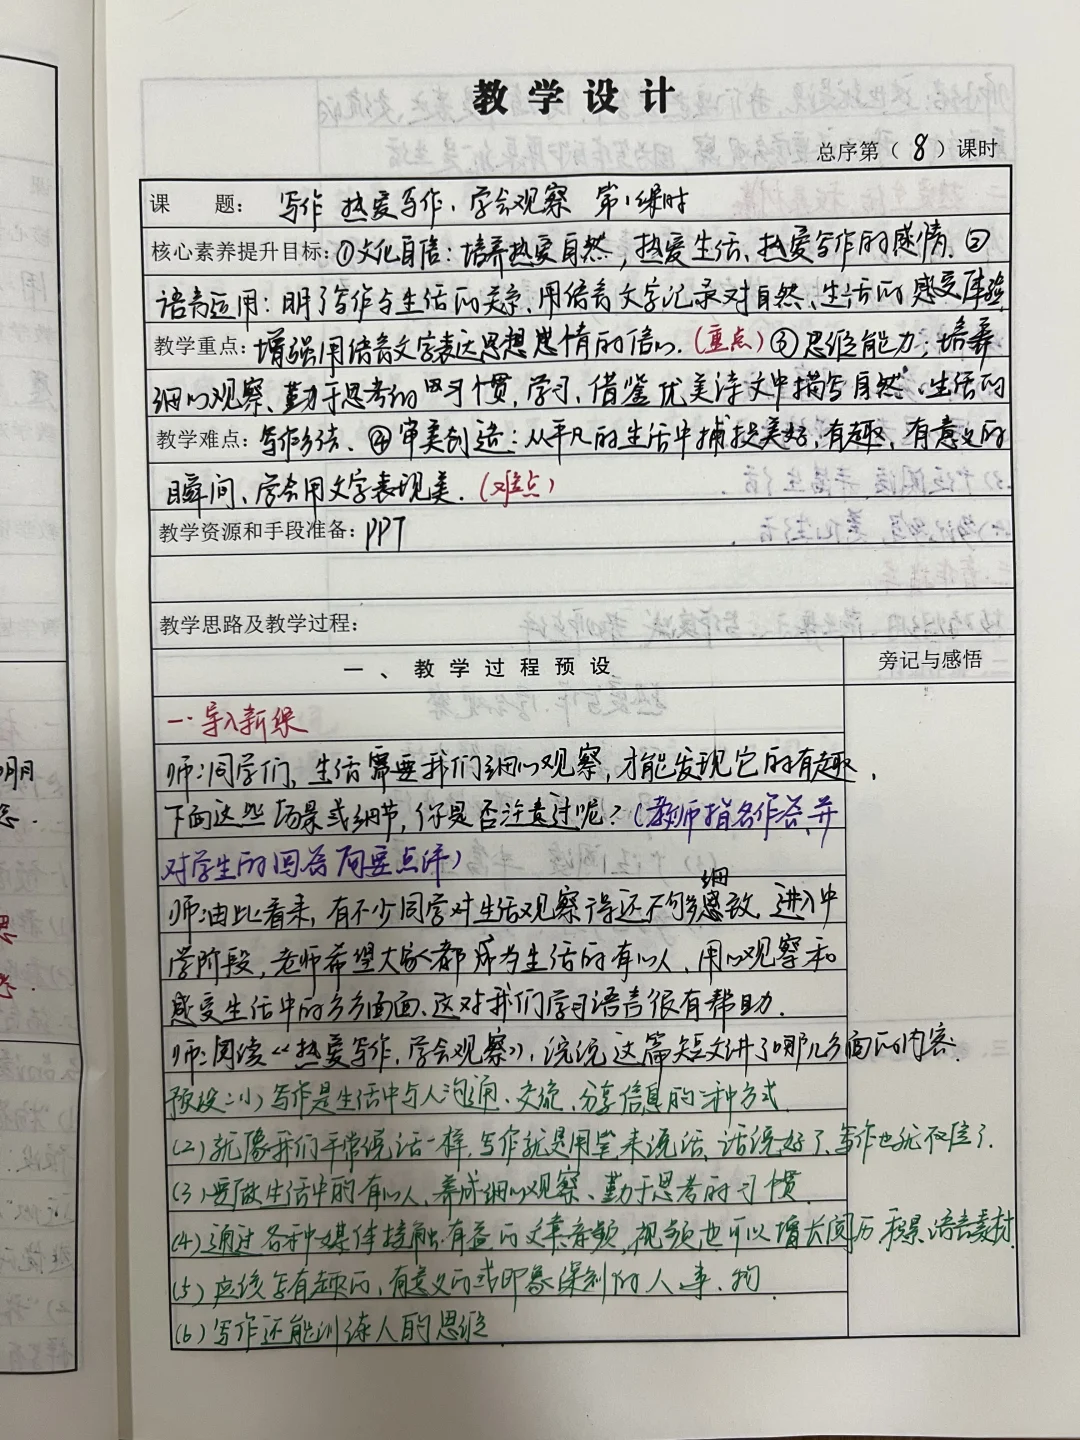 教学设计
总序第（8）课时
课 题：写作 热爱写作，学会观察 第1课时
核心素养提升目标：①文化自信：培养热爱自然，热爱生活、热爱写作的感情。②
语言运用：明了写作与生活的关系，用语言文字记录对自然、生活的感受体验
教学重点：增强用语言文字表达思想感情的信心.（重点）③思维能力：培养
细心观察、勤于思考的习惯，学习、借鉴优美诗文中描写自然、生活的
教学难点：写作方法、④审美创造：从平凡的生活中捕捉美好，有趣，有意义的
瞬间、学会用文字表现美.（难点）
教学资源和手段准备：PPT
教学思路及教学过程：
一、教学过程预设
旁记与感悟
一.导入新课
师：同学们，生活需要我们细心观察，才能发现它的有趣，
下面这些场景或细节，你是否注意过呢？（教师指名作答，并
对学生的回答简要点评）
师：由此看来，有不少同学对生活观察得还不够细致，进入中
学阶段，老师希望大家都成为生活的有心人、用心观察和
感受生活中的方方面面、这对我们学习语言很有帮助.
师：阅读《热爱写作，学会观察》，说说这篇短文讲了哪几方面的内容.
预设：（1）写作是生活中与人沟通、交流、分享信息的一种方式.
（2）就像我们平常说话一样，写作就是用笔来说话，话说好了、写作也就不怪了.
（3）要做生活中的有心人、养成细心观察、勤于思考的习惯.
（4）通过各种媒体接触有益的文章音频，视频也可以增长阅历积累语言素材.
（5）应该写有趣的，有意义的或印象深刻的人、事、物
（6）写作还能训练人的思维